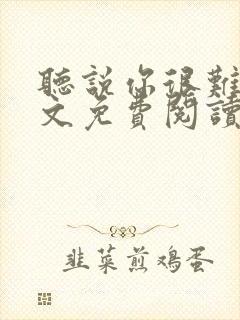 聽説你很難
文免費閱讀
韭菜煎鸡蛋